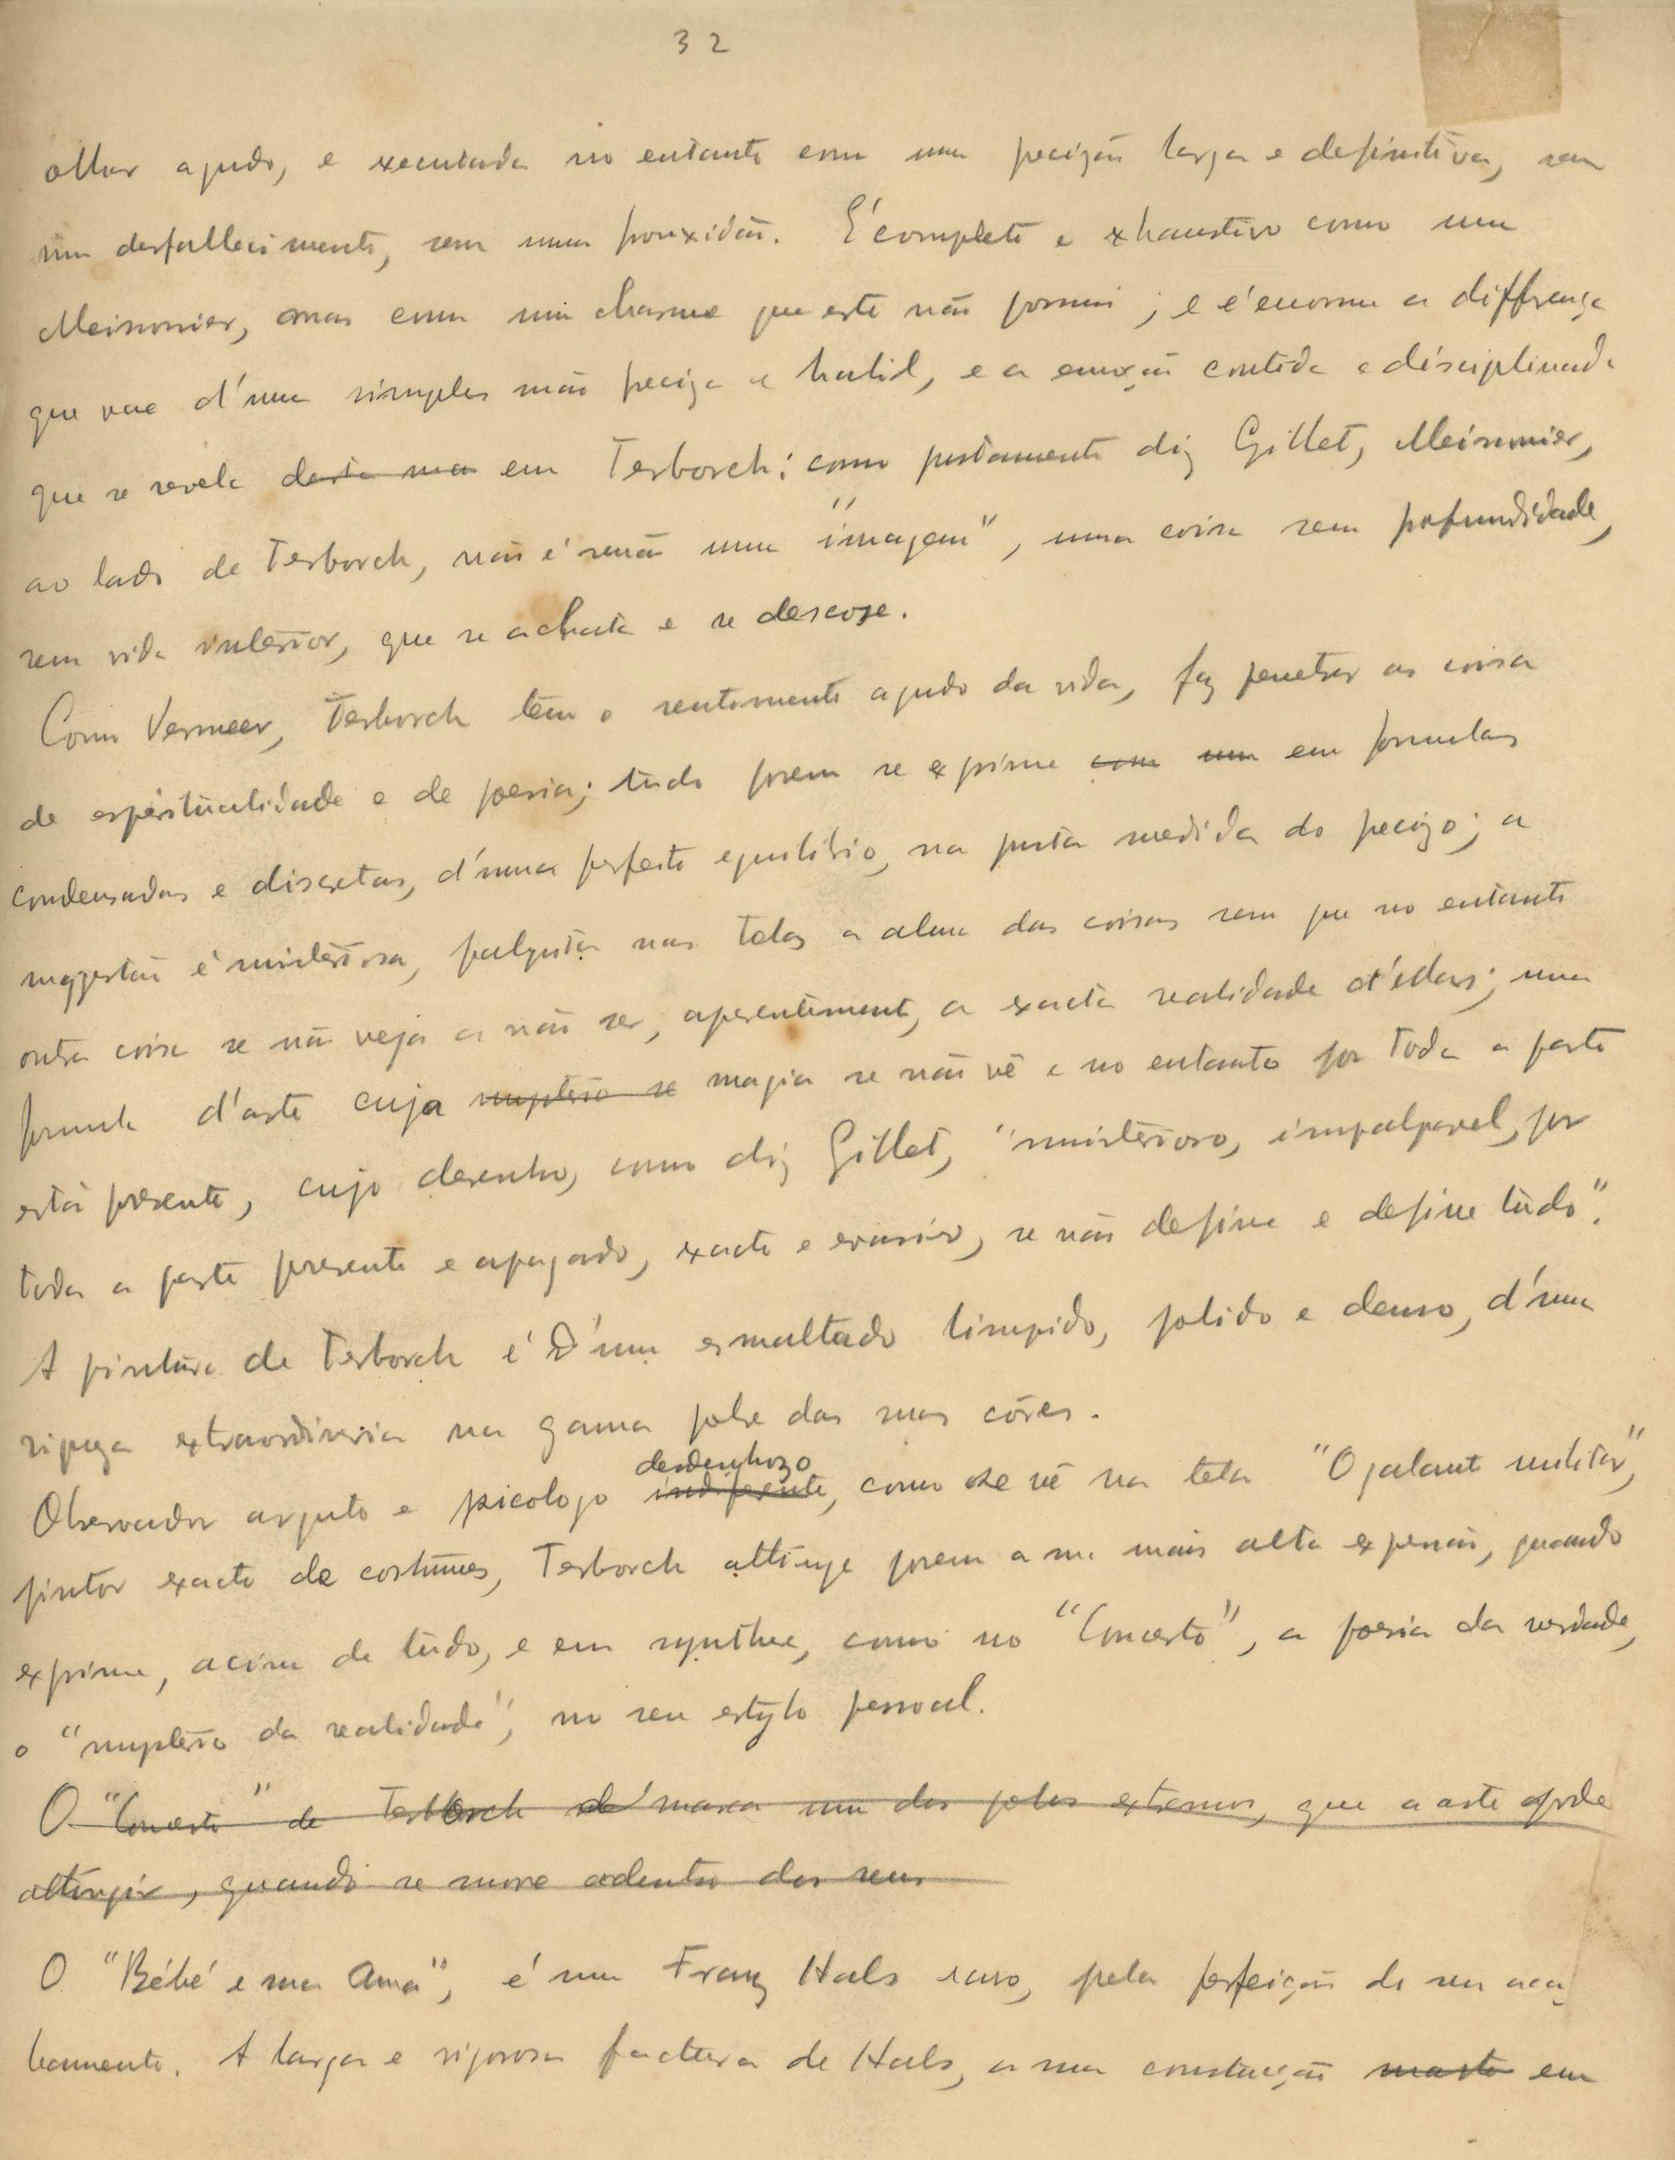 32
olhar agudo, e executada no entanto com uma precizão larga e definitiva, sem
um desfallecimento, sem uma frouxidão. É completo e exhaustivo como um
Meisonier, mas com um charme que este não possui; e é enorme a differença
que vae d'uma simples mão preciza e habil, e a emoção contida e disciplinada
que se revela em Terborch: como justamente diz Gillet, Meisonnier,
ao lado de Terborch, não é senão uma "imagem", uma coisa sem profundidade,
sem vida interior, que se achata e se descose.
Como Vermeer, Terborch tem o sentimento agudo da vida, faz penetrar as coisa
de espiritualidade e de poesia; tudo porem se exprime com um em formulas
condensadas e discretas, d'uma perfeito equilibrio, na justa medida do precizo; a
suggestão é misteriosa, palpita nas telas a alma das coisas sem que no entanto
outra coisa se não veja a não ser, aparentement, a exacta realidade d'ellas; uma
formula d'arte cuja mysterio se magia se não vê e no entanto por toda a parte
está presente, cujo desenho, como diz Gillet, "misterioso, impalpavel, por
toda a parte presente e apagado, exacto e evasivo, se não define e define tudo".
A pintura de Terborch é d'um esmaltado limpido, polido e denso, d'uma
riqueza extraordinaria na gama pobre das suas côres.
desdenhozo
Observador arguto e psicologo indiferente, como se vê na tela "O galant militar",
pintor exacto de costumes, Terborch attinge porem a sua mais alta expressão, quando
exprime, acima de tudo, e em synthese, como no "Concerto", a poesia da verdade,
o "mysterio da realidade", no seu estylo pessoal.
O "Concerto" de Terborch marca um dos polos extremos, que a arte pode
attingir, quando se move adentro dos seus
O "Bébé e sua Ama", é um Franz Hals raro, pela perfeição do seu aca
bamento. A larga e rigorosa factura de Hals, a sua construção em